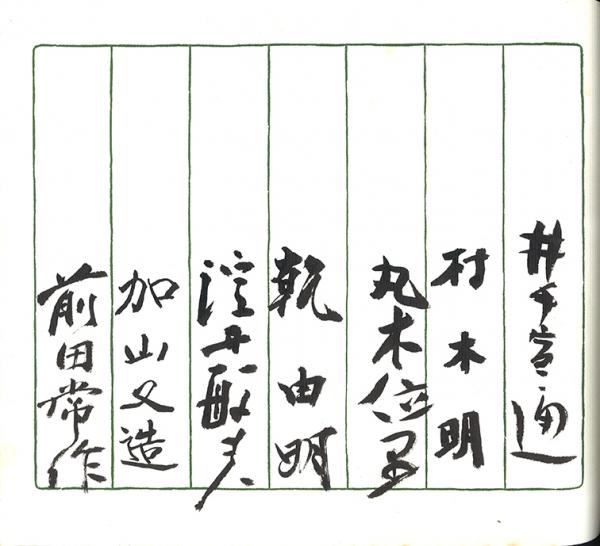 井手宣通
村木明
丸木位里
乾由明
淀井敏夫
加山又造
前田常作